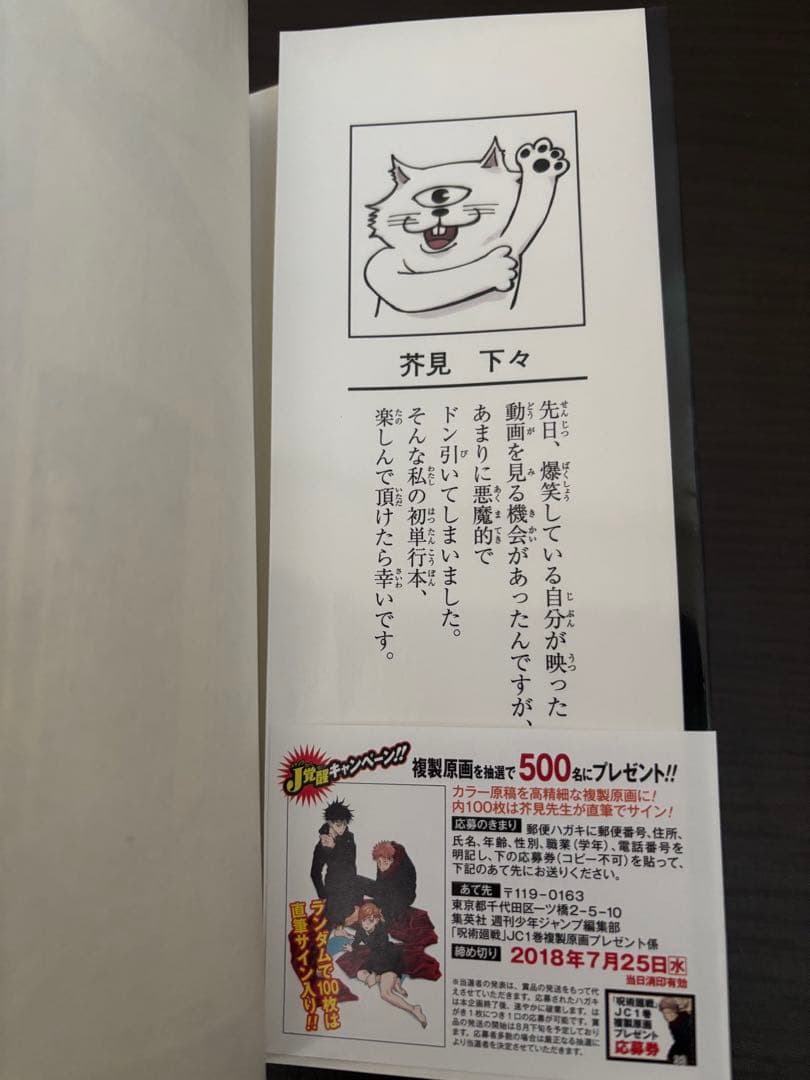 芥見 下々
先日、爆笑している自分が映った
動画を見る機会があったんですが、
あまりに悪魔的で
ドン引いてしまいました。
そんな私の初単行本、
楽しんで頂けたら幸いです。
J覚醒キャンペーン!!
複製原画を抽選で500名にプレゼント!!
カラー原稿を高精細な複製原画に!
内100枚は芥見先生が直筆でサイン!
応募のきまり 郵便ハガキに郵便番号、住所、
氏名、年齢、性別、職業(学年)、電話番号を
明記し、下の応募券(コピー不可)を貼って、
下記のあて先にお送りください。
あて先 〒119-0163
東京都千代田区一ツ橋2-5-10
集英社 週刊少年ジャンプ編集部
「呪術廻戦」JC1巻複製原画プレゼント係
締め切り 2018年7月25日水
当日消印有効
ランダムで100枚は
直筆サイン入り!!
※当選者の発表は、賞品の発送をもって代
えさせていただきます。応募されたハガキ
は本企画終了後、速やかに破棄します。は
がき1枚につき1口の応募が可能です。賞
品の発送の開始は8月下旬を予定しており
ます。応募者多数の場合は厳正なる抽選に
より当選者を決定させていただきます。
「呪術廻戦」
JC1巻
複製原画
プレゼント
応募券